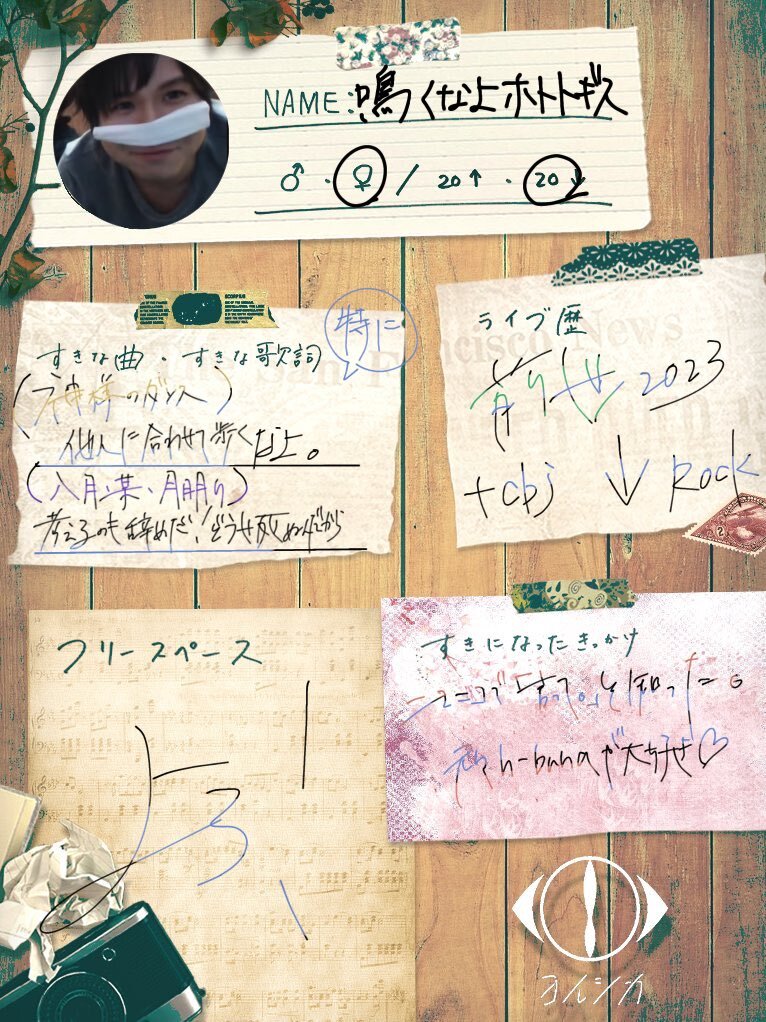 NAME:鳴くなよホトトギス
♂・♀ / 20↑・20↓
特に
すきな曲・すきな歌詞
(神様のダンス)
他人に合わせて歩くなよ。
(八月、某、月明り)
考えるのも辞めだ!どうせ死ぬんだから
ライブ歴
前世 2023
↓ Rock
フリースペース
すきになったきっかけ
ニコニコで を知った。
元々n-bunaが大好き♡
ヨルシカ